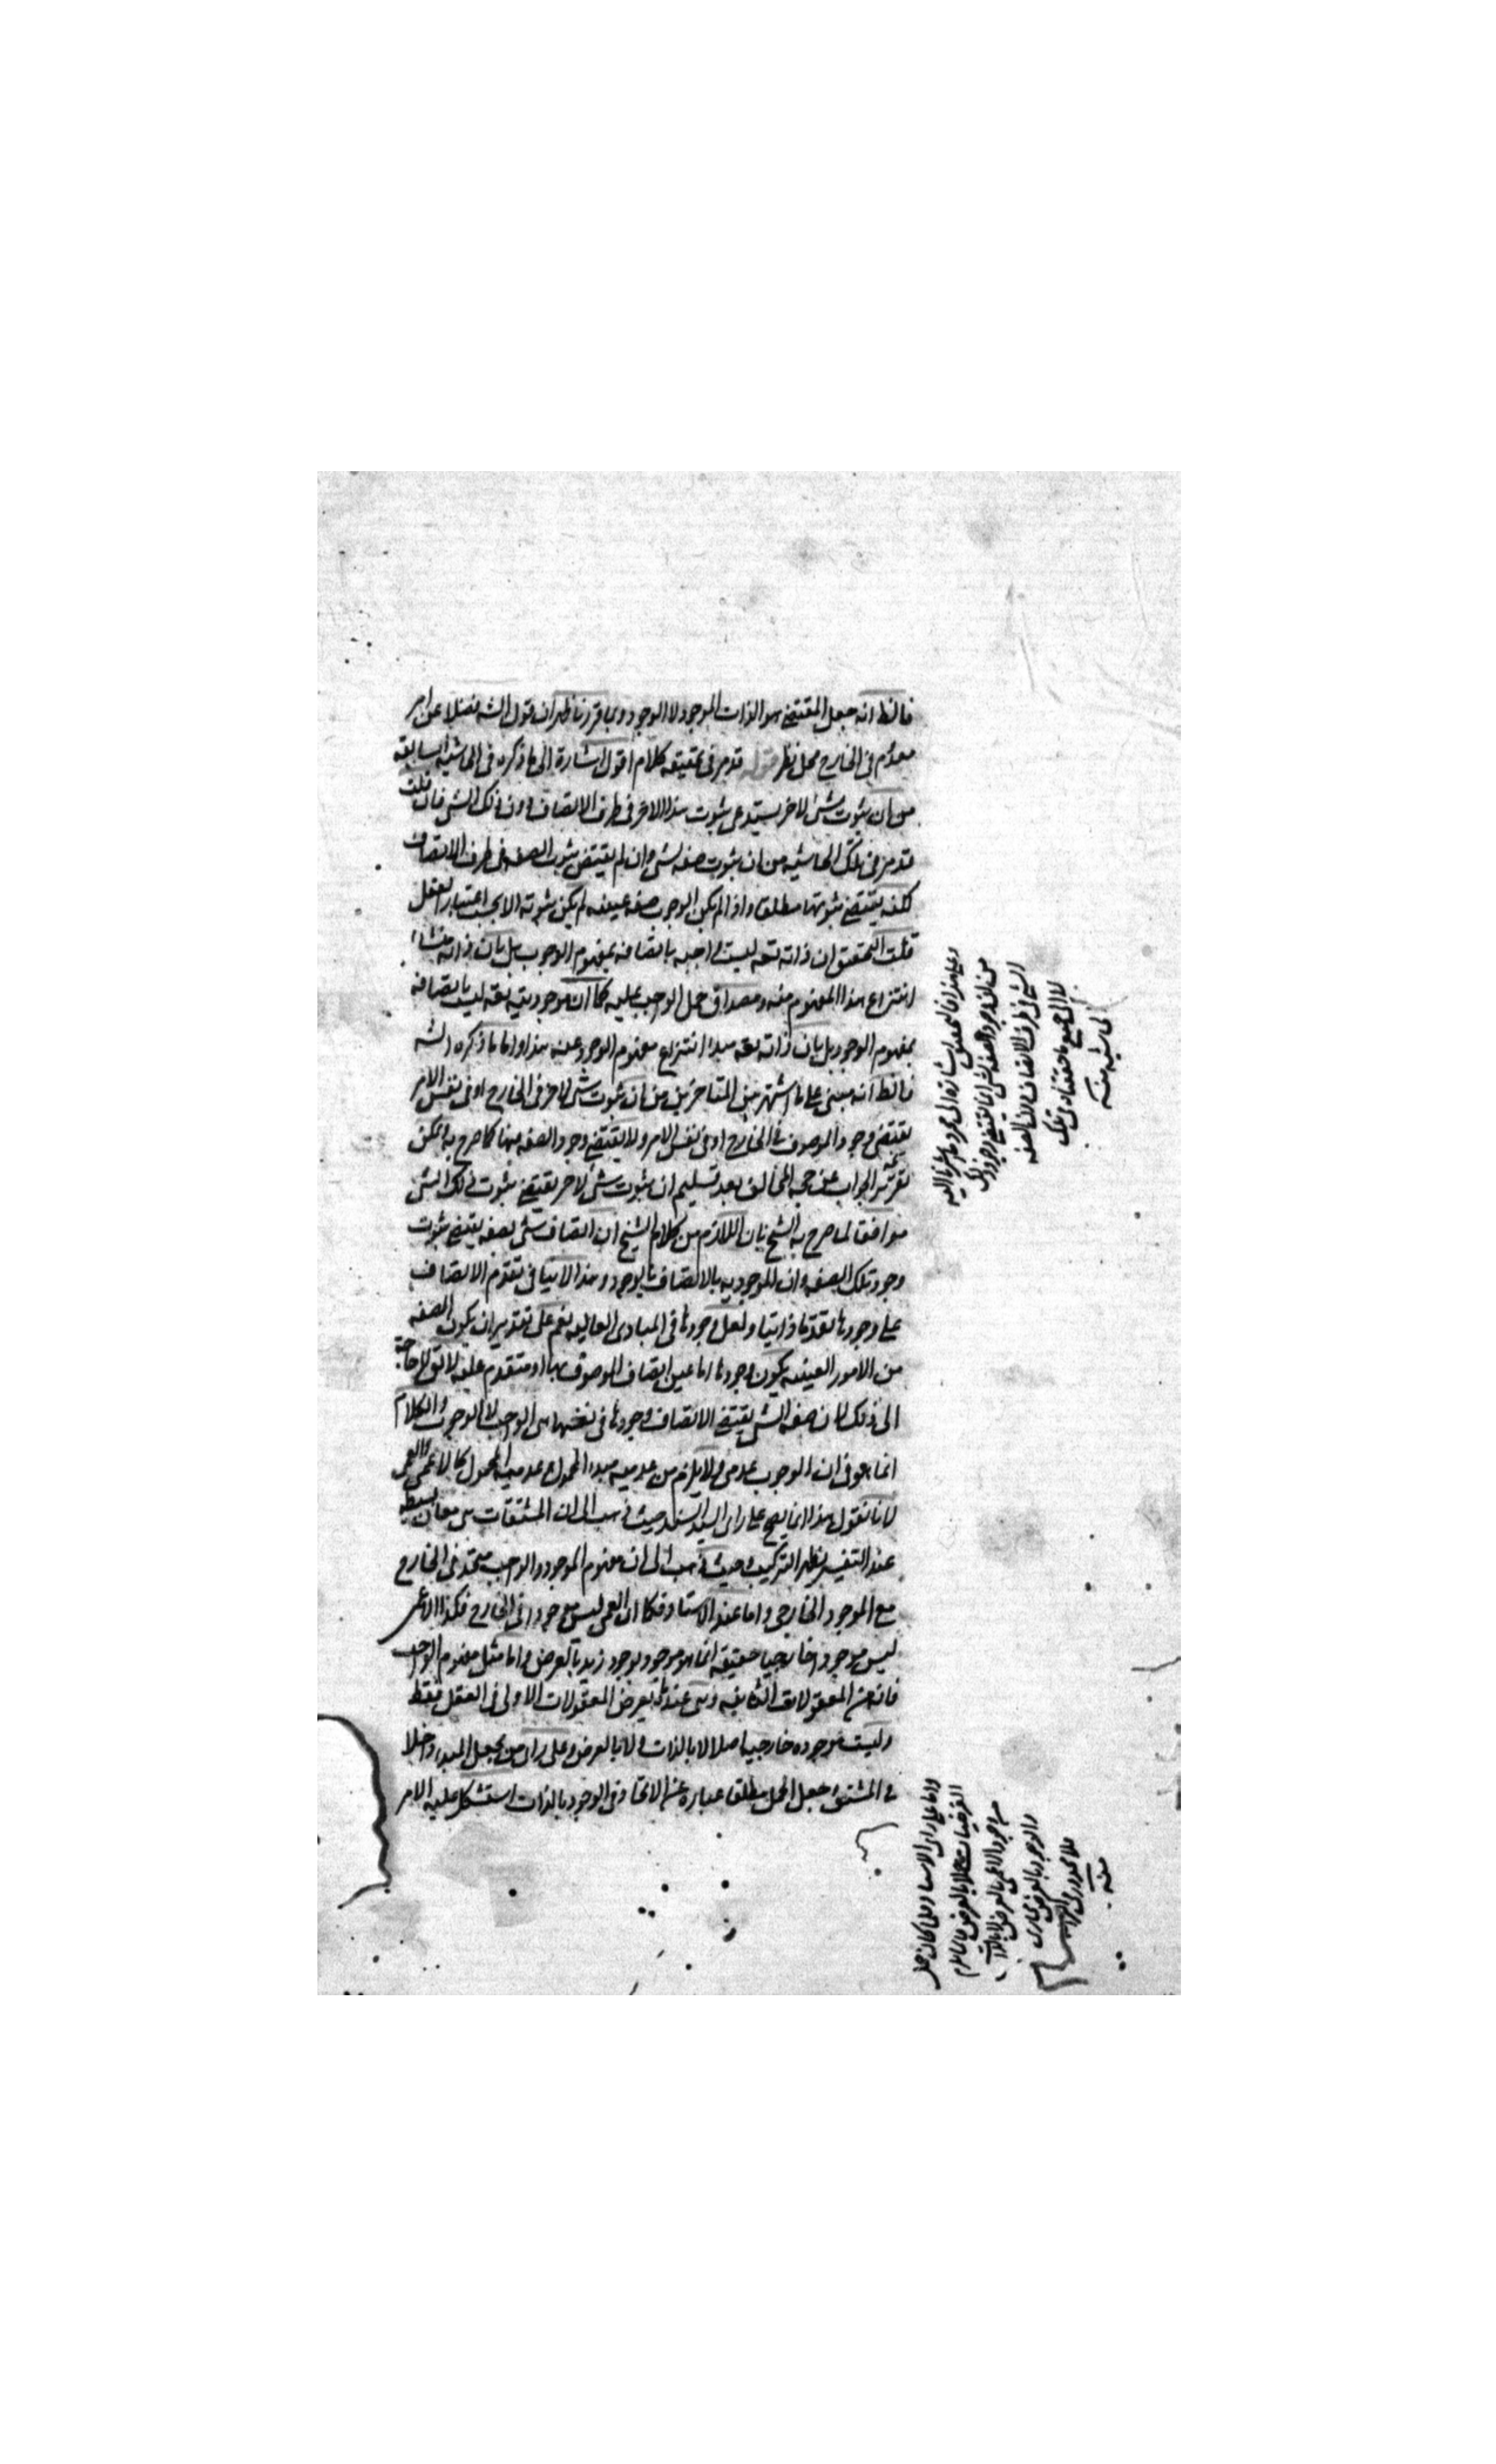 فالظ انه جعل المقتضي هو الذات الموجود لا الوجود وبما قررنا ظهر ان قول الشه فضلا عن امر
معدوم في الخارج محل نظر قوله قد مر في تحقيقه كلام اقول اشارة الى ما ذكره في الحاشية السابقة
من ان ثبوت شئ لاخر يستدعي ثبوت هذا الاخر في ظرف الاتصاف دون ذلك الشئ فان قلت
قد مر في تلك الحاشيه من ان ثبوت صفه لشئ وان لم يقتض ثبوت الصفه في ظرف الاتصاف
لكنه يقتضي ثبوتها مطلقا واذا لم يكن الوجوب صفه عينيه لم يكن ثبوته الا بحسب اعتبار العقل
قلت التحقيق ان ذاته تعه ليست واجبه باتصافه بمفهوم الوجوب بل بان ذاته منشاء
انتزاع هذا المفهوم منه ومصداق حمل الواجب عليه كما ان موجوديته تعه ليت باتصافه
بمفهوم الوجود بل بان ذاته تعه مبدا انتزاع مفهوم الوجود عنه هذا واما ما ذكره الشه
فالظ انه مبني على ما اشتهر بين المتاخرين من ان ثبوت شئ لاخر في الخارج او في نفس الامر
يقتضي وجود الموصوف في الخارج او في نفس الامر ولا يقتضي وجود الصفه فيها كما صرح به يمكن
تقرير الجواب عن حجه المخالف بعد تسليم ان ثبوت شئ لاخر يقتضي ثبوت ذلك الشئ
موافقا لما صرح به الشيخ بان اللازم من كلام الشيخ ان اتصاف شئ بصفه يقتضي ثبوت
وجود تلك الصفه وان الموجوديه بالاتصاف بالوجود وهذا لا ينافي تقدم الاتصاف
على وجودها تقدما ذاتيا ولعل وجودها في المبادي العاليه نعم على تقدير ان يكون الصفه
من الامور العينيه يكون وجودها اما عين اتصاف الموصوف بها او متقدم عليه لا يق لا حاجة
الى ذلك لان صفه الشئ يقتضي الاتصاف وجودها في نفسها هي الواجب لا الوجوب والكلام
انما هو في ان الوجوب عدمي ولا يلزم من عدميه مبدء المحمول عدميه المحمول كالاعمى والعمى
لانا نقول هذا انما يصح على راي السيد السند حيث ذهب الى ان المشتقات هي معان بسيطه
عند التفسير يظهر التركيب وحيث ذهب الى ان مفهوم الموجود والواجب متحد في الخارج
مع الموجود الخارجي واما عند الاستاد فكما ان العمى ليس موجودا في الخارج فكذا الاعمى
ليس موجودا خارجيا حقيقه انما هو موجود بوجود زيد بالعرض واما مثل مفهوم الواجب
فانه من المعقولات الثانيه وهي عنده تعرض المعقولات الاولى في العقل فقط
وليست موجوده خارجيا اصلا لا بالذات ولا بالعرض وعلى راي من يجعل المبدء داخلا
في المشتق وجعل الحمل مطلقا عباره عن الاتحاد في الوجود بالذات استشكل عليه الامر
وعلى هذا فالتحقيق اشارة الى مجرد ما اشرنا اليه
من ان وجود الصفه لشئ انما يقتضي وجود ذلك
الشئ في ظرف الاتصاف لا الصفه
لا الى جميع ما حققناه في تلك
الحاشيه منه
واما على راي الاستاد فلما كان حمل
منه